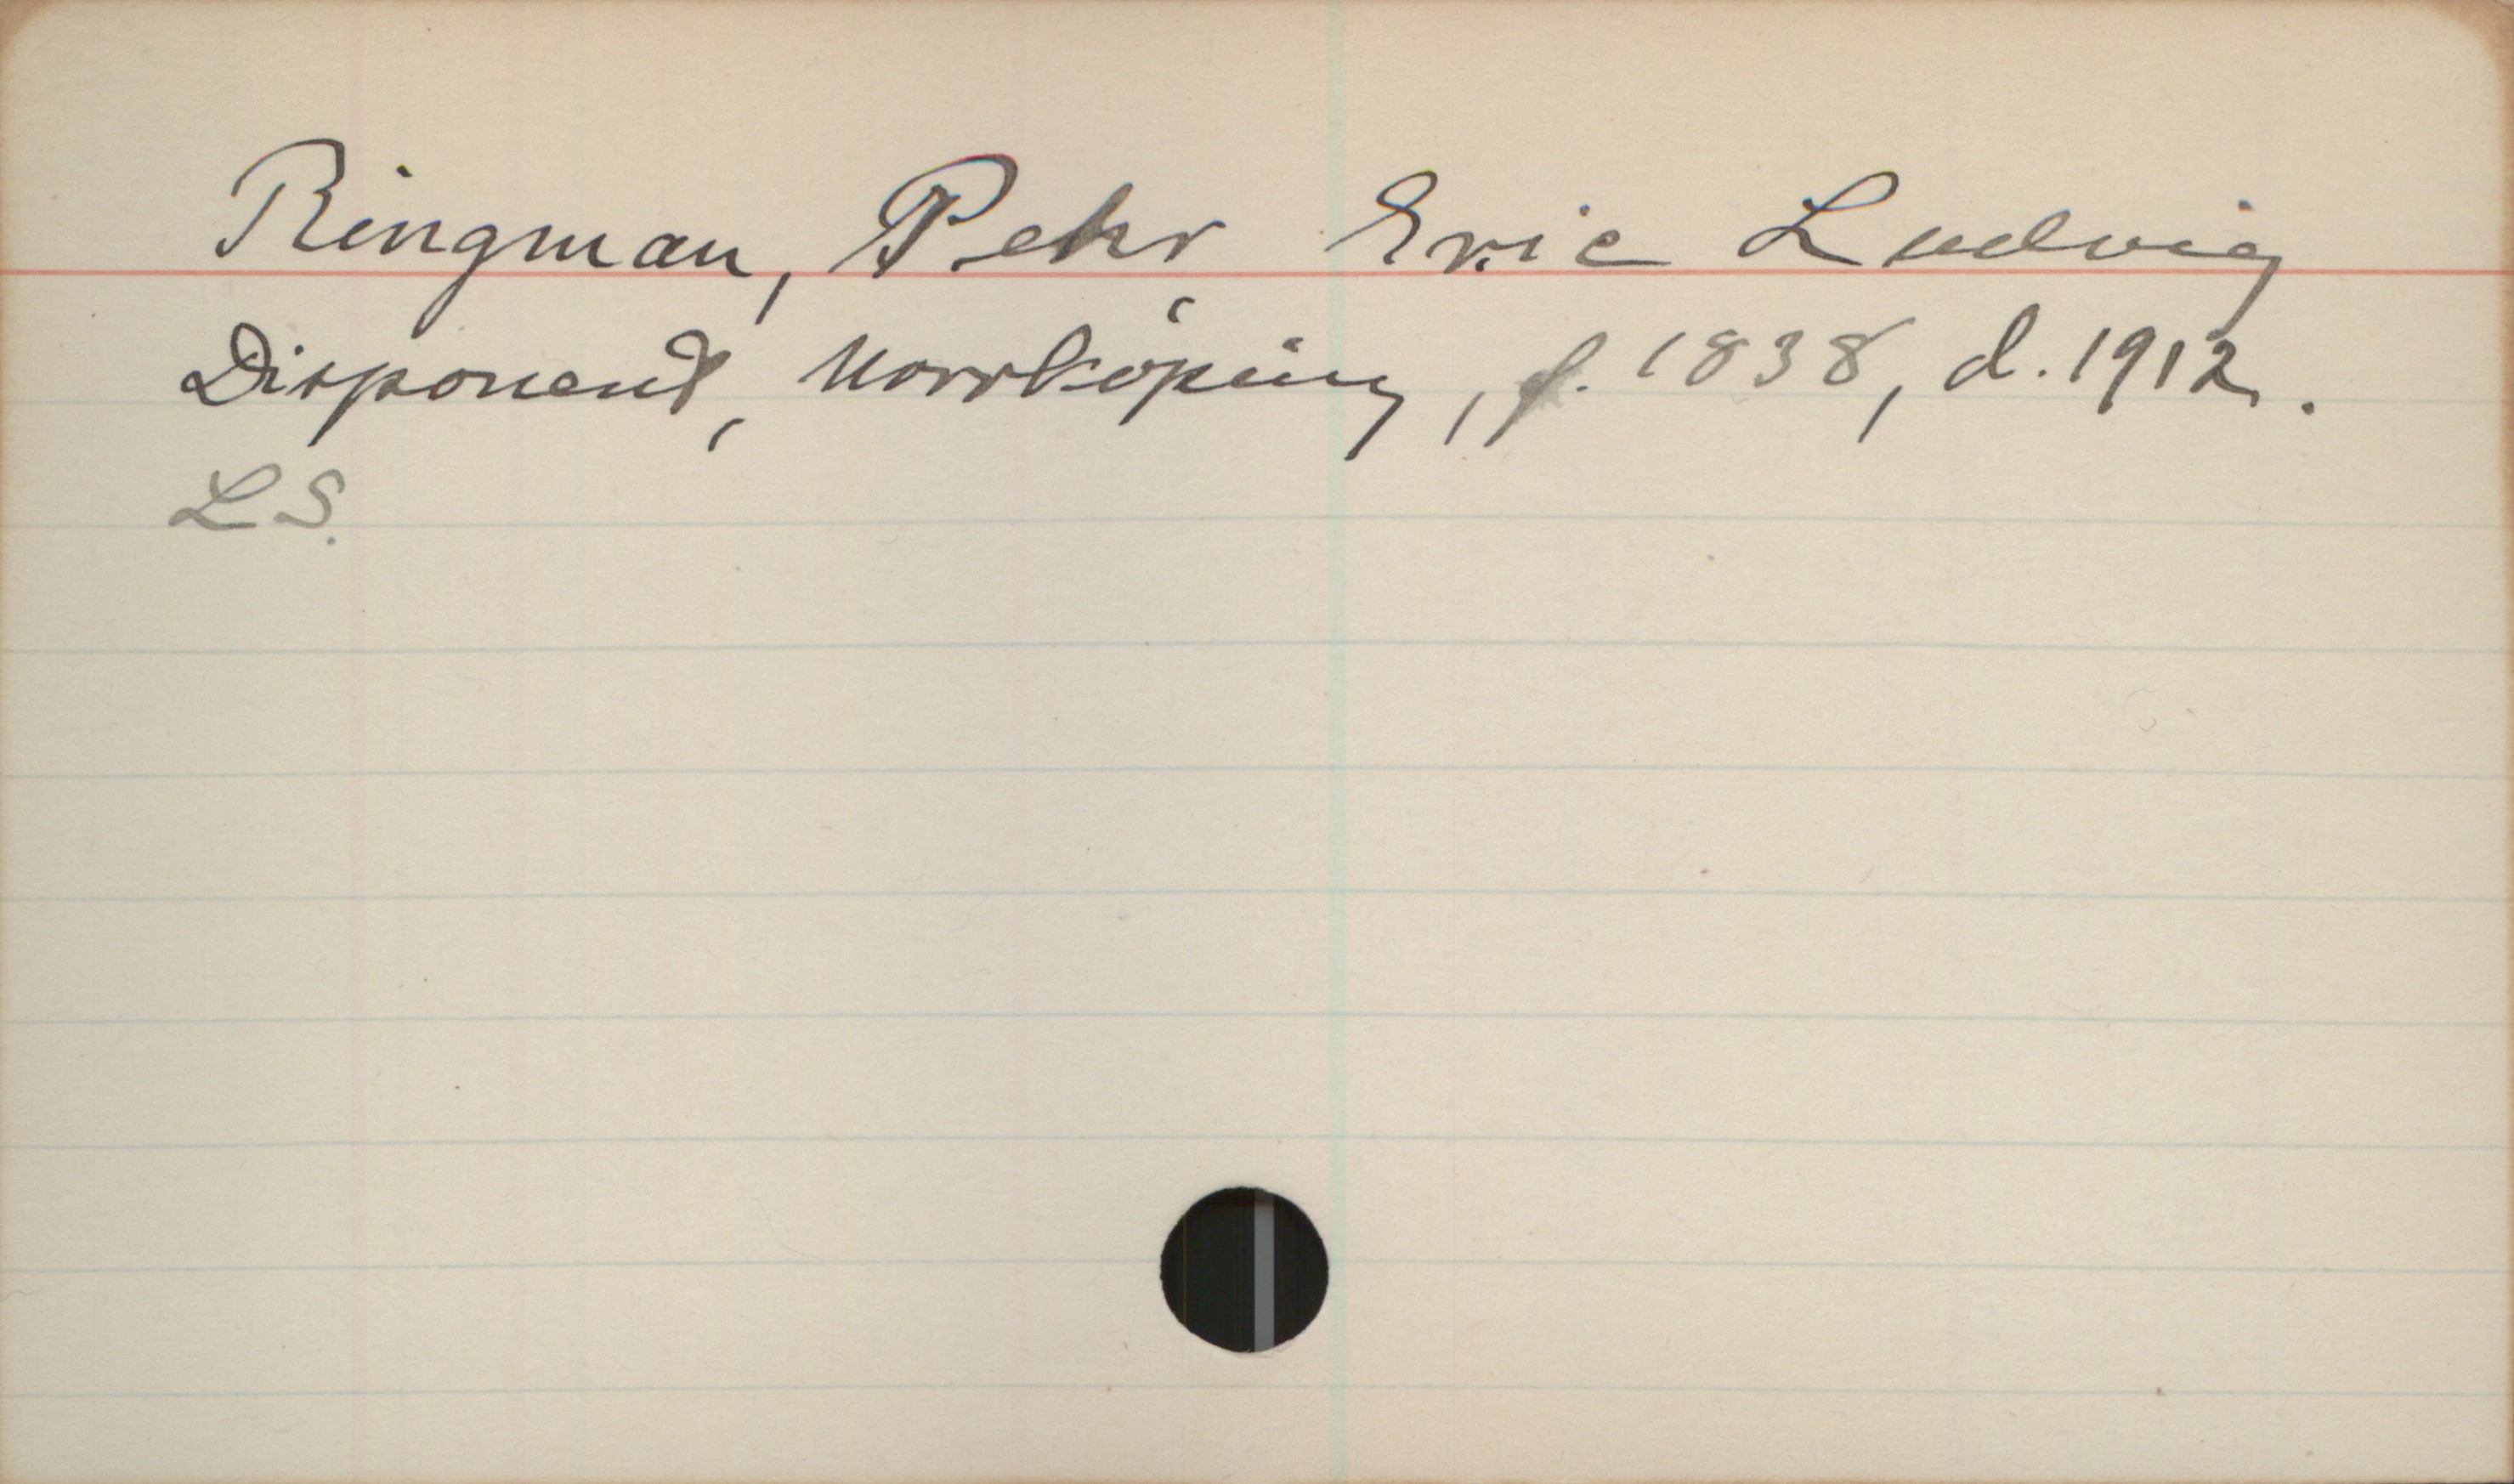 Ringman, Pehr Eric Ludvig
Disponent, Norrköping, f. 1838, d. 1912.
LS.